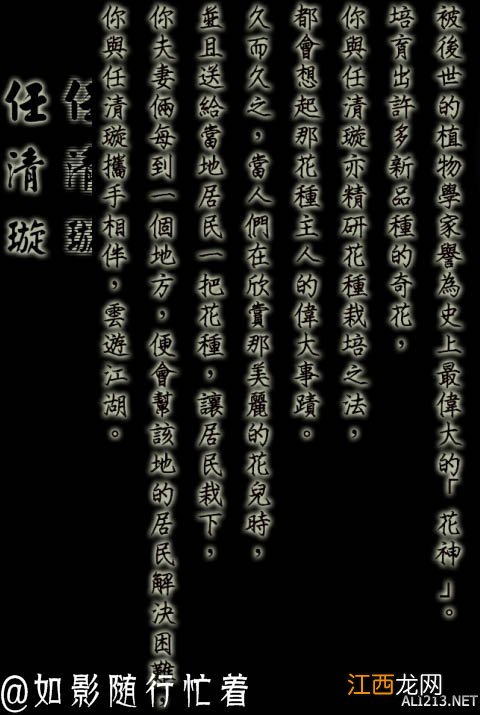 任清璇
任清璇
你與任清璇攜手相伴，雲遊江湖。
你夫妻倆每到一個地方，便會幫該地的居民解決困難，
並且送給當地居民一把花種，讓居民栽下，
久而久之，當人們在欣賞那美麗的花兒時，
都會想起那花種主人的偉大事蹟。
你與任清璇亦精研花種栽培之法，
培育出許多新品種的奇花，
被後世的植物學家譽為史上最偉大的「花神」。
@如影随行忙着
江西龙网
ALI213.NET